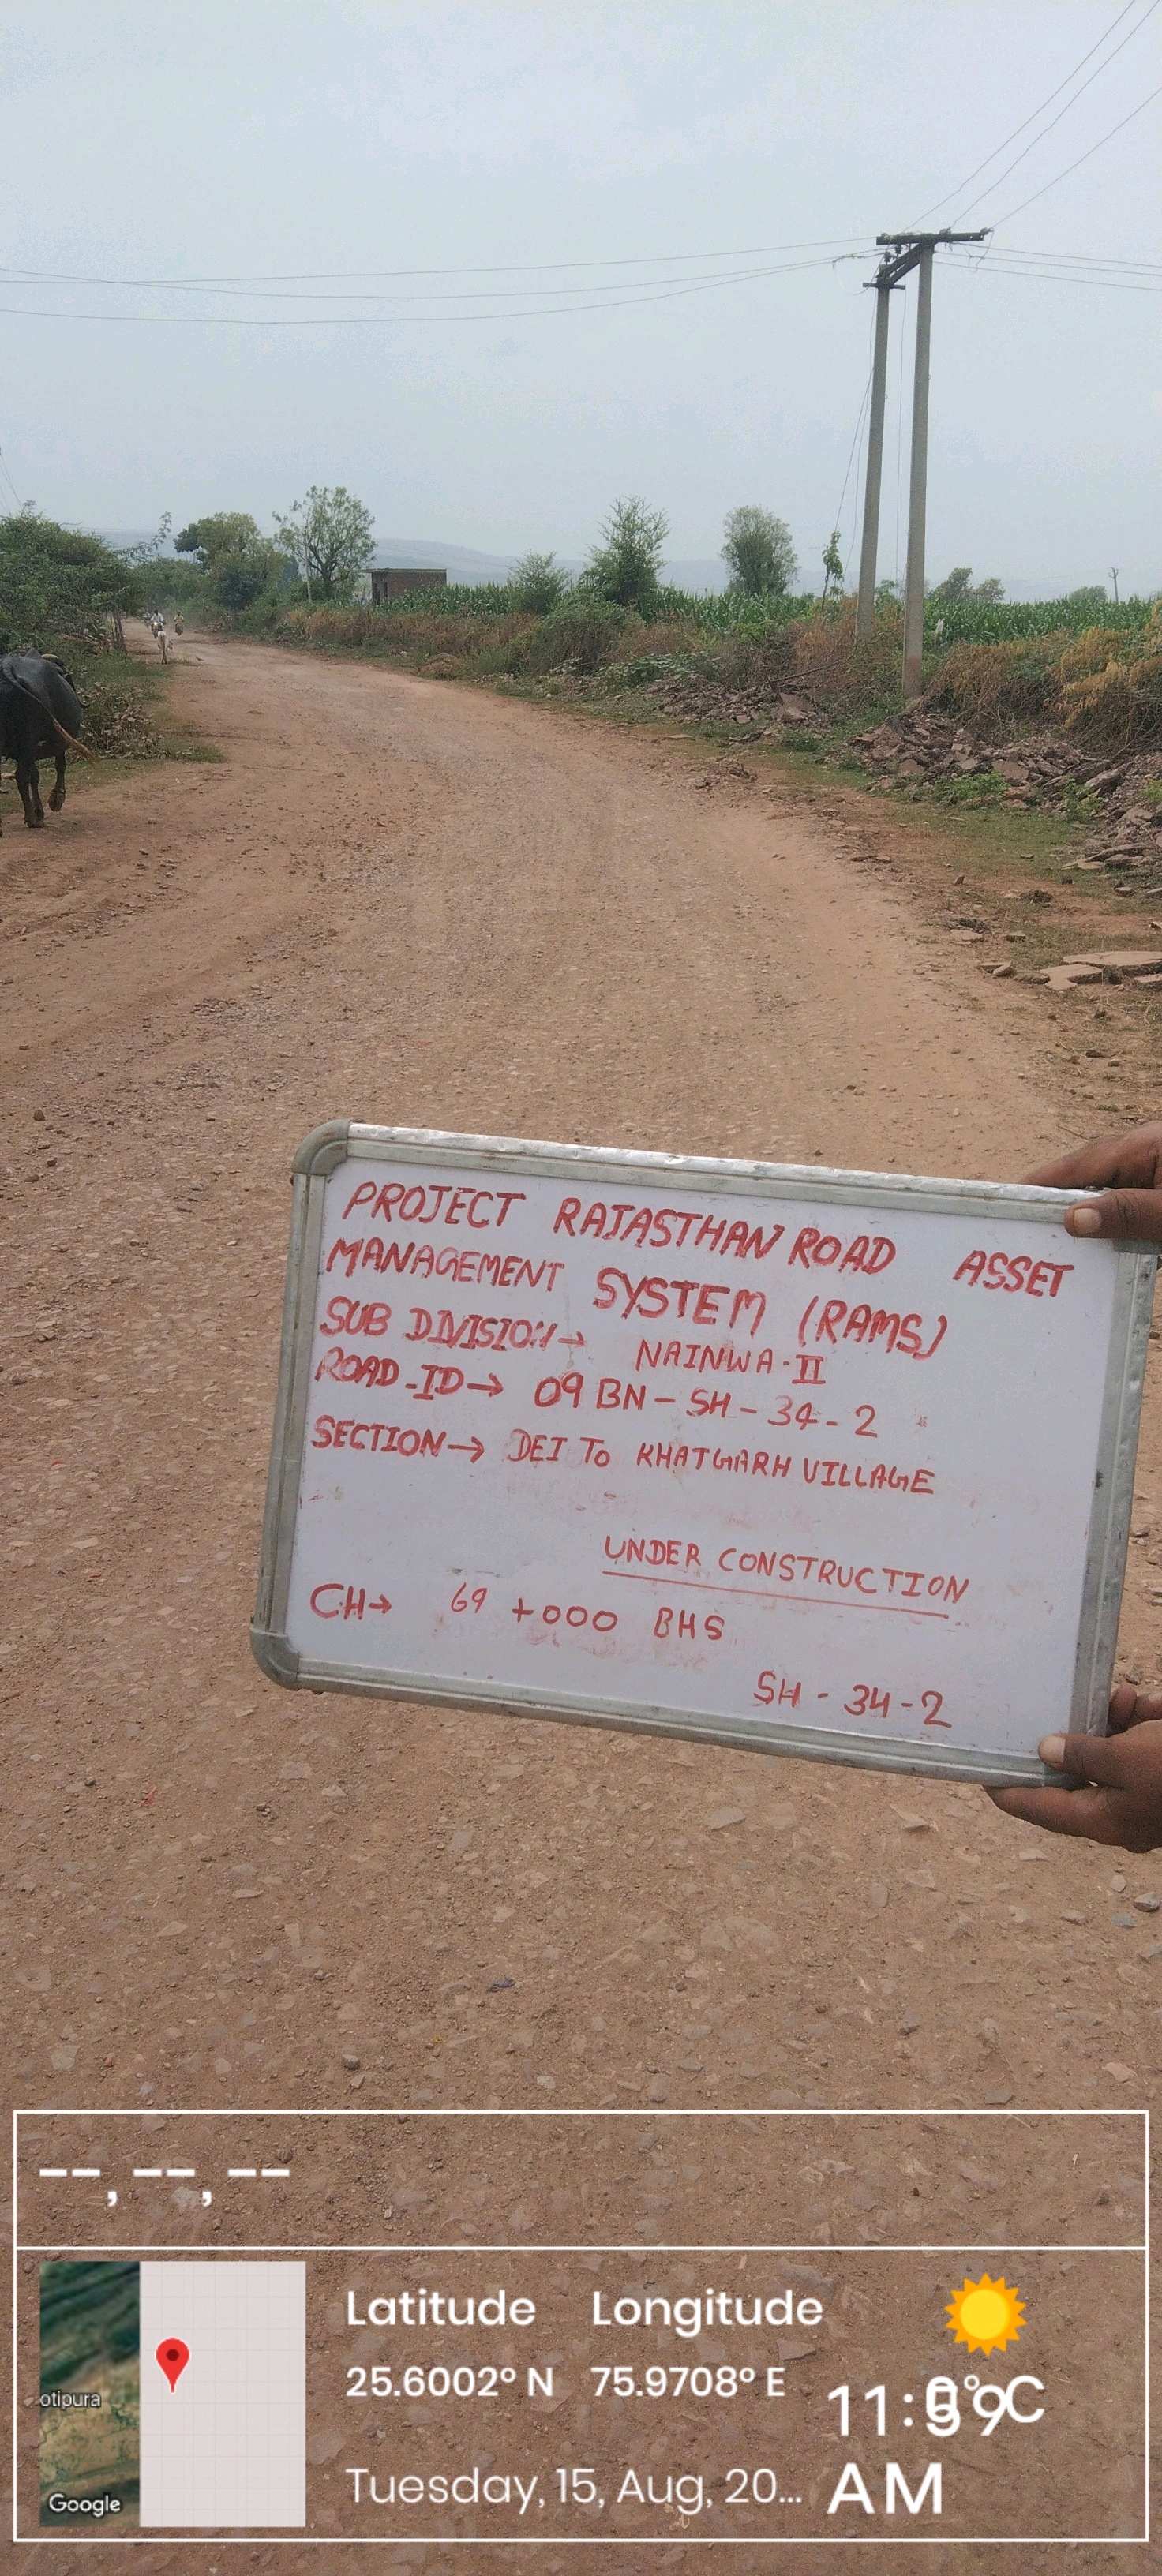 PROJECT RAJASTHAN ROAD ASSET
MANAGEMENT SYSTEM (RAMS)
SUB DIVISION → NAINWA-II
ROAD-ID → 09 BN - SH - 34 - 2
SECTION → DEI TO KHATGARH VILLAGE
UNDER CONSTRUCTION
CH → 69 +000 BHS
SH - 34 - 2
--, --, --
Latitude Longitude
25.6002° N 75.9708° E
otipura
Google
Tuesday, 15, Aug, 20...
AM